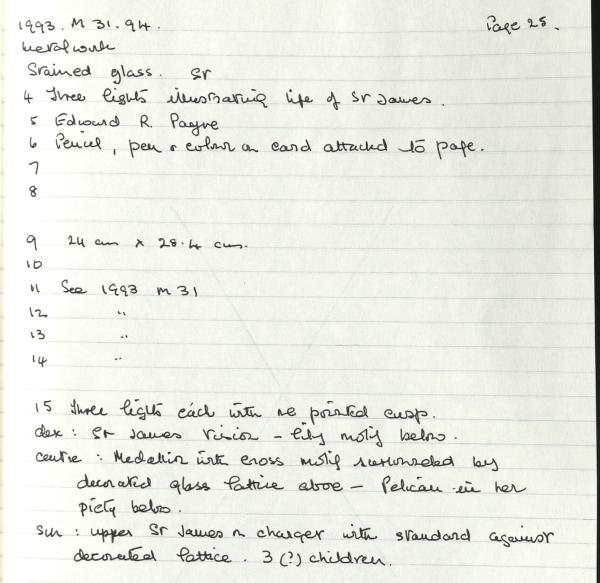 1993. M 31.94. Page 25.
Metalwork
Stained glass. St
4 Three lights illustrating life of St James.
5 Edward R. Payne
6 Pencil, pen & colour on card attached to page.
7
8
9 24 cm x 28.4 cm.
10
11 See 1993 M 31
12 "
13 "
14 "
15 Three lights each with one pointed cusp.
dex: St James Vision - lily motif below.
centre: Medallion with cross motif surrounded by
decorated glass lattice above - Pelican in her
piety below.
sin: upper St James on charger with standard against
decorated lattice. 3 (?) children.